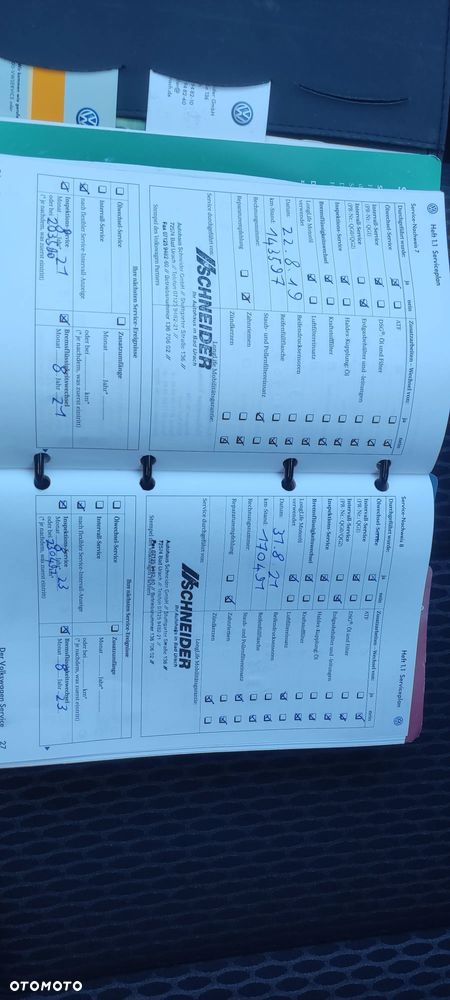 Heft 1.1 Serviceplan
Service-Nachweis 7
Durchgeführt wurde:
ja
nein
Zusatzarbeiten - Wechsel von:
ja
nein
Ölwechsel-Service
Intervall-Service
(PR-Nr.: QG1)
Intervall-Service
(PR-Nr.: QG0/QG2)
Inspektions-Service
Bremsflüssigkeitswechsel
LongLife Motoröl
verwendet
Datum: 22.8.19
km-Stand: 143597
Rechnungsnummer:
Reparaturempfehlung
ATF
DSG®: Öl und Filter
Erdgasbehälter und -leitungen
Haldex-Kupplung: Öl
Kraftstofffilter
Luftfiltereinsatz
Reifendrucksensoren
Reifenfüllflasche
Staub- und Pollenfiltereinsatz
Zahnriemen
Zündkerzen
Service durchgeführt von:
LongLife Mobilitätsgarantie:
SCHNEIDER
Ihr Autohaus in Bad Urach
Autohaus Schneider GmbH // Stuttgarter Straße 136 //
72574 Bad Urach // Telefon 07125 9482-21 //
Stempel des Volkswagen Partners
Ihre nächsten Service-Ereignisse
Ölwechsel-Service
Intervall-Service
nach flexibler Service-Intervall-Anzeige
Inspektions-Service
Monat 8 Jahr 21
oder bei
(* je nachdem, was zuerst eintritt)
Zusatzumfänge
Monat Jahr*
oder bei km*
(* je nachdem, was zuerst eintritt)
Bremsflüssigkeitswechsel
Monat 8 Jahr 21
Service-Nachweis 8
Heft 1.1 Serviceplan
Durchgeführt wurde:
ja
nein
Zusatzarbeiten - Wechsel von:
ja
nein
Ölwechsel-Service
Intervall-Service
(PR-Nr.: QG1)
Intervall-Service
(PR-Nr.: QG0/QG2)
Inspektions-Service
Bremsflüssigkeitswechsel
LongLife Motoröl
verwendet
Datum: 31.8.21
km-Stand: 170431
Rechnungsnummer:
Reparaturempfehlung
ATF
DSG®: Öl und Filter
Erdgasbehälter und -leitungen
Haldex-Kupplung: Öl
Kraftstofffilter
Luftfiltereinsatz
Reifendrucksensoren
Reifenfüllflasche
Staub- und Pollenfiltereinsatz
Zahnriemen
Zündkerzen
Service durchgeführt von:
LongLife Mobilitätsgarantie:
SCHNEIDER
Ihr Autohaus in Bad Urach
Autohaus Schneider GmbH // Stuttgarter Straße 136 //
72574 Bad Urach // Telefon 07125 9482-21 //
Ihre nächsten Service-Ereignisse
Ölwechsel-Service
Intervall-Service
nach flexibler Service-Intervall-Anzeige
Inspektions-Service
Monat 8 Jahr 23
oder bei
(* je nachdem, was zuerst eintritt)
Zusatzumfänge
Monat Jahr*
oder bei km*
(* je nachdem, was zuerst eintritt)
Bremsflüssigkeitswechsel
Monat 8 Jahr 23
Der Volkswagen Service 27
OTOMOTO